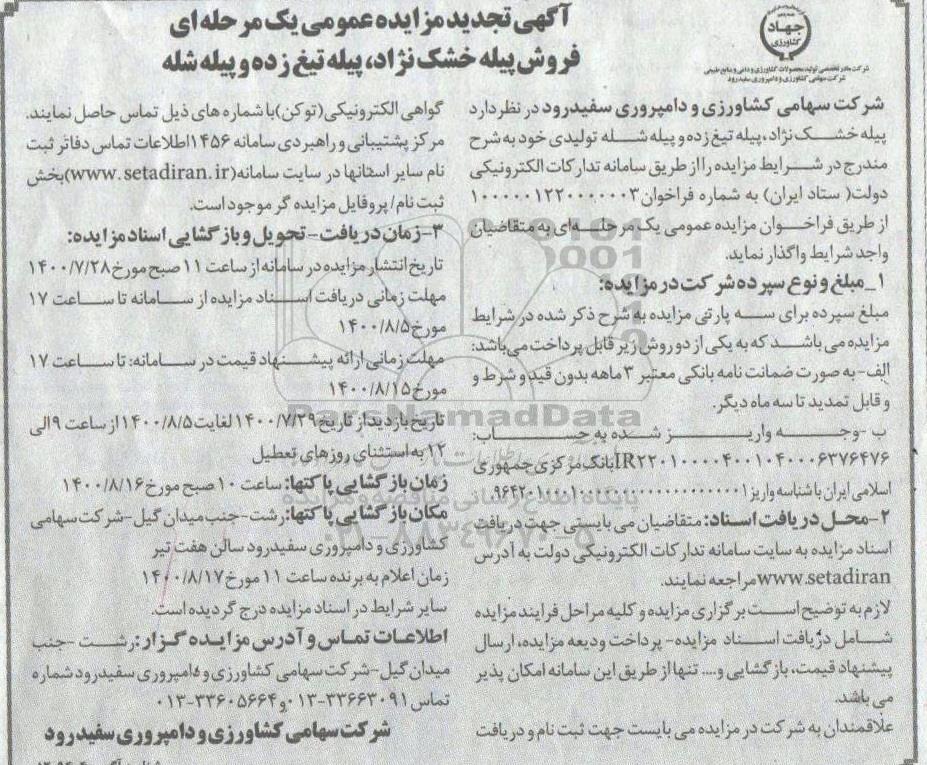 آگهی تجدید مزایده عمومی یک مرحله‌ای
فروش پیله خشک نژاد، پیله تیغ زده و پیله شله
جهاد
کشاورزی
شرکت مادر تخصصی تولید محصولات کشاورزی و دامی و منابع طبیعی
شرکت سهامی کشاورزی و دامپروری سفیدرود
شرکت سهامی کشاورزی و دامپروری سفیدرود در نظر دارد
پیله خشک نژاد، پیله تیغ زده و پیله شله تولیدی خود به شرح
مندرج در شرایط مزایده را از طریق سامانه تدارکات الکترونیکی
دولت( ستاد ایران) به شماره فراخوان
از طریق فراخوان مزایده عمومی یک مرحله‌ای به متقاضیان
واجد شرایط واگذار نماید.
۱_مبلغ و نوع سپرده شرکت در مزایده:
مبلغ سپرده برای سه پارتی مزایده به شرح ذکر شده در شرایط
مزایده می باشد که به یکی از دو روش زیر قابل پرداخت می‌باشد:
الف-به صورت ضمانت نامه بانکی معتبر ۳ ماهه بدون قید و شرط و
و قابل تمدید تا سه ماه دیگر.
ب -وجه واریز شده به حساب:
IR۲۲۰۱۰۰۰۰۴۰۰۱۰۴۰۰۰۶۳۷۶۴۷۶ بانک مرکزی جمهوری
اسلامی ایران با شناسه واریز
۲-محل دریافت اسناد: متقاضیان می بایستی جهت دریافت
اسناد مزایده به سایت سامانه تدارکات الکترونیکی دولت به آدرس
www.setadiran مراجعه نمایند.
لازم به توضیح است برگزاری مزایده و کلیه مراحل فرایند مزایده
شامل دریافت اسناد مزایده- پرداخت ودیعه مزایده، ارسال
پیشنهاد قیمت، بازگشایی و.... تنها از طریق این سامانه امکان پذیر
می باشد.
علاقمندان به شرکت در مزایده می بایست جهت ثبت نام و دریافت
گواهی الکترونیکی (توکن) با شماره های ذیل تماس حاصل نمایند.
مرکز پشتیبانی و راهبردی سامانه ۱۴۵۶ اطلاعات تماس دفاتر ثبت
نام سایر استانها در سایت سامانه(www.setadiran.ir)بخش
ثبت نام/ پروفایل مزایده گر موجود است.
۳-زمان دریافت- تحویل و بازگشایی اسناد مزایده:
تاریخ انتشار مزایده در سامانه از ساعت ۱۱ صبح مورخ ۱۴۰۰/۷/۲۸
مهلت زمانی دریافت اسناد مزایده از سامانه تا ساعت ۱۷
مورخ ۱۴۰۰/۸/۵
مهلت زمانی ارائه پیشنهاد قیمت در سامانه: تا ساعت ۱۷
مورخ ۱۴۰۰/۸/۱۵
تاریخ بازدید از تاریخ ۱۴۰۰/۷/۲۹ لغایت ۱۴۰۰/۸/۵ از ساعت ۹ الی
۱۲ به استثنای روزهای تعطیل
زمان بازگشایی پاکتها: ساعت ۱۰ صبح مورخ ۱۴۰۰/۸/۱۶
مکان بازگشایی پاکتها: رشت-جنب میدان گیل-شرکت سهامی
کشاورزی و دامپروری سفیدرود سالن هفت تیر
زمان اعلام به برنده ساعت ۱۱ مورخ ۱۴۰۰/۸/۱۷
سایر شرایط در اسناد مزایده درج گردیده است.
اطلاعات تماس و آدرس مزایده گزار: رشت -جنب
میدان گیل-شرکت سهامی کشاورزی و دامپروری سفیدرود شماره
تماس ۳۳۶۶۳۰۹۱-۰۱۳ و ۳۳۶۰۵۶۶۴-۰۱۳
شرکت سهامی کشاورزی و دامپروری سفیدرود
ParsNamadData
پایگاه اطلاع رسانی مناقصه و مزایده
۰۲۱-۸۸۳۴۹۶۷۰-۵